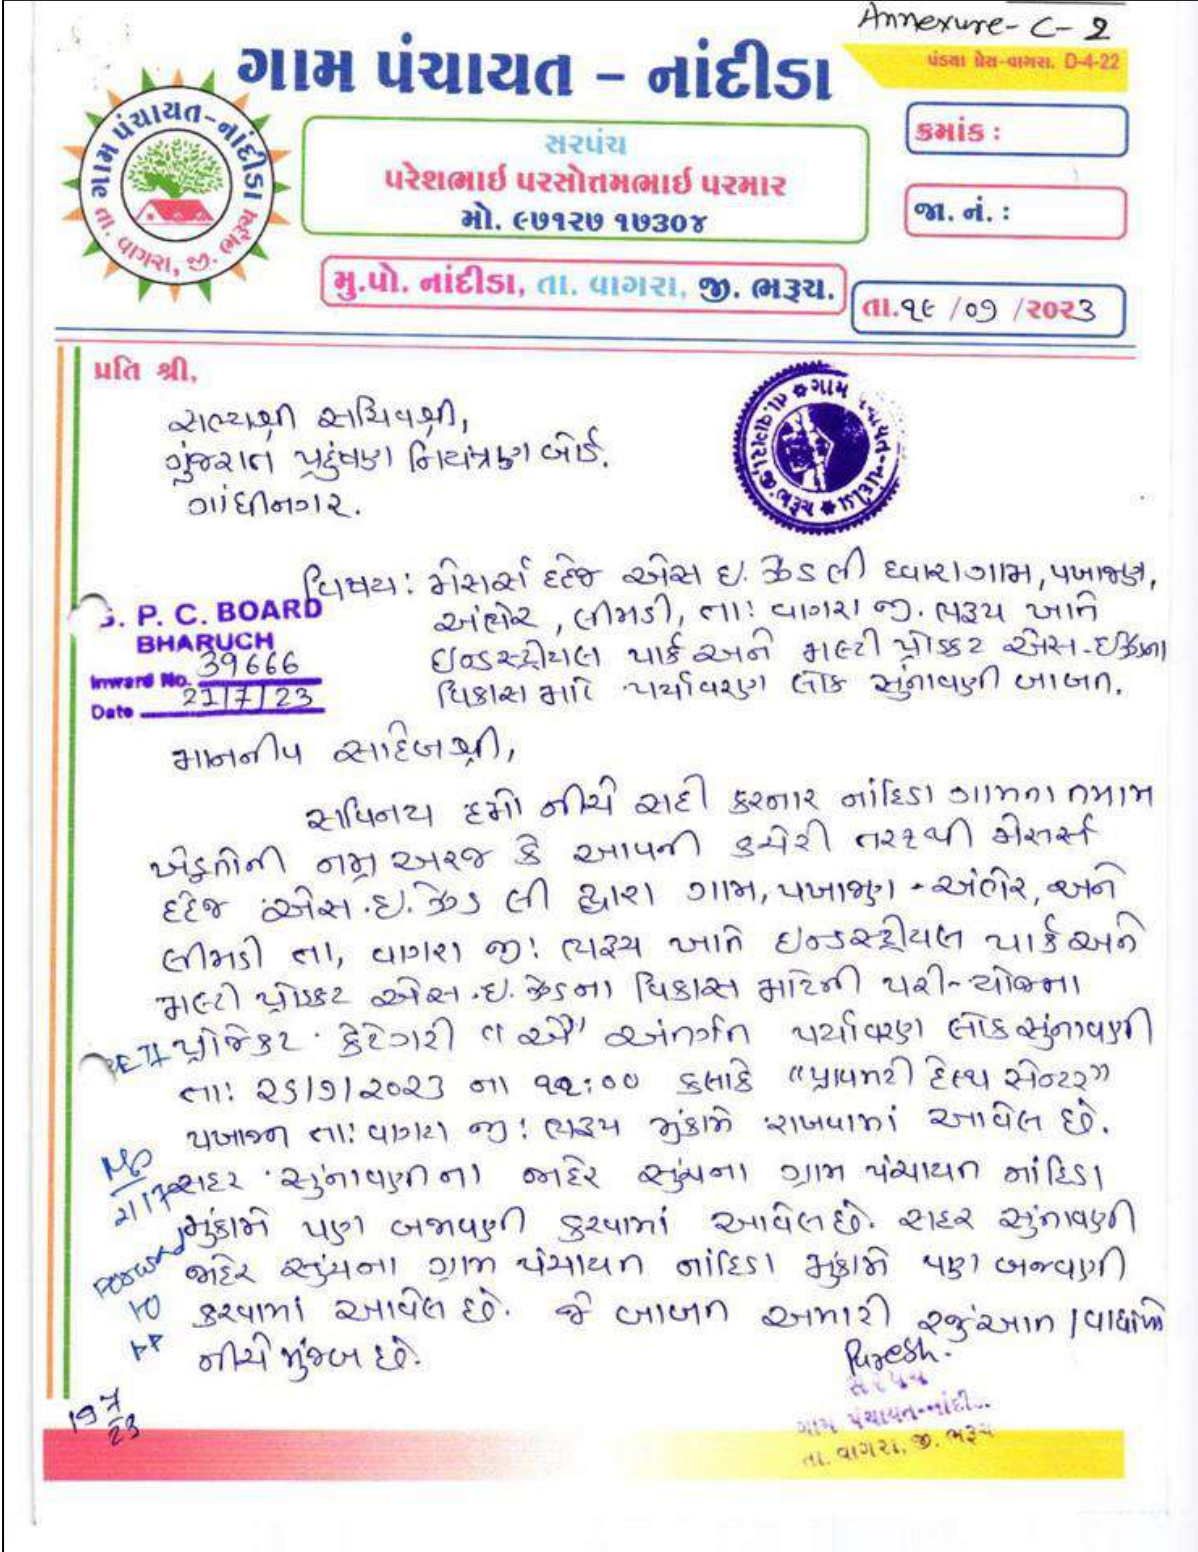 Annexure- C- 2
ગામ પંચાયત – નાંદીડા
પંડયા પ્રેસ-વાગરા. D-4-22
ગામ પંચાયત-નાંદીડા
તા. વાગરા, જી. ભરૂચ
સરપંચ
પરેશભાઈ પરસોતમભાઈ પરમાર
મો. ૯૭૧૨૭ ૧૭૩૦૪
ક્રમાંક :
જા. નં. :
મુ.પો. નાંદીડા, તા. વાગરા, જી. ભરૂચ.
તા.૧૯ /૦૭ /૨૦૨૩
પ્રતિ શ્રી,
સભ્યશ્રી સચિવશ્રી,
ગુંજરાત પ્રદુંષણ નિયંત્રણ બોર્ડ.
ગાંધીનગર.
વિષય: મેસર્સ દહેજ એસ ઇ. ઝેડ લી ધ્વારા ગામ, પખાજણ,
અંભેર, લીમડી, તા: વાગરા જી. ભરૂચ ખાતે
ઇન્ડસ્ટ્રીયલ પાર્ક અને મલ્ટી પ્રોડકટ એસ-ઇ.ઝેડના
વિકાસ માટે પર્યાવરણ લોક સુંનાવણી બાબત.
G. P. C. BOARD
BHARUCH
Inward No. 39666
Date 21/7/23
માનનીય સાહેબશ્રી,
સવિનય હમો નીચે સહી કરનાર નાંદિડા ગામના તમામ
ખેડુતોની નમ્ર અરજ કે આપની કચેરી તરફથી મેસર્સ
દહેજ એસ.ઇ.ઝેડ લી દ્વારા ગામ, પખાજણ - અંભેર, અને
લીમડી તા, વાગરા જી: ભરૂચ ખાતે ઇન્ડસ્ટ્રીયલ પાર્ક અને
મલ્ટી પ્રોડકટ એસ.ઇ.ઝેડના વિકાસ માટેની પરી-યોજના
પ્રોજેકટ કેટેગરી "એ" અંતર્ગત પર્યાવરણ લોકસુંનાવણી
તા: ૨૬/૭/૨૦૨૩ ના ૧૧:૦૦ કલાકે "પ્રાયમરી હેલ્થ સેન્ટર"
પખાજણ તા: વાગરા જી: ભરૂચ મુંકામે રાખવામાં આવેલ છે.
સદર સુંનાવણીના જાહેર સુંચના ગ્રામ પંચાયત નાંદિડા
મુંકામે પણ બજવણી કરવામાં આવેલ છે. સદર સુંનાવણી
જાહેર સુંચના ગ્રામ પંચાયત નાંદિડા મુંકામે પણ બજવણી
કરવામાં આવેલ છે. જે બાબત અમારી રજુંઆત / વાંધાઓ
નીચે મુંજબ છે.
Puresh.
સરપંચ
ગામ પંચાયત-નાંદીડા
તા. વાગરા, જી. ભરૂચ
19 7/23